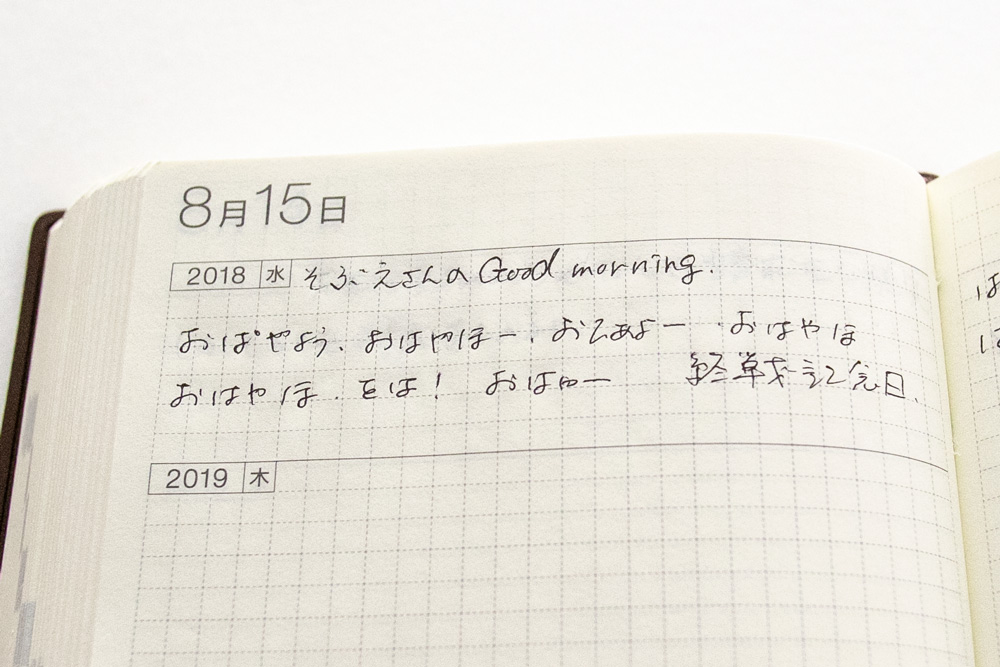 8月15日
2018 水 そふえさんのGood morning.
おぱやよう、おはやほー、おてあよー、おはやほ
おはやほ、をは! おはゆー 終戦記念日.
2019 木
は